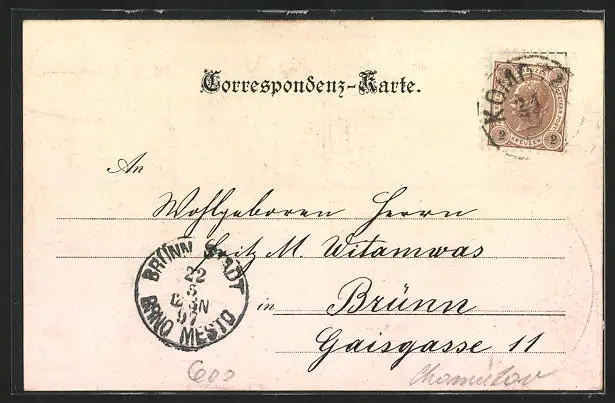 Correspondenz-Karte.
KOM
21
2 KREUZER 2
An
Wohlgeboren Herrn
Fritz M. Witamwas
in Brünn
Gaisgasse 11
BRÜNN STADT
22
5
12 3N
97
BRNO MESTO
600
Chomutov